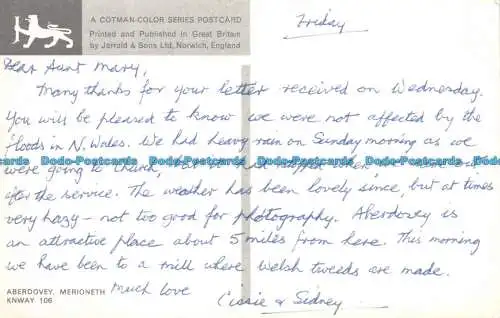 A COTMAN-COLOR SERIES POSTCARD
Printed and Published in Great Britain
by Jarrold & Sons Ltd, Norwich, England
Friday
Dear Aunt Mary,
Many thanks for your letter received on Wednesday.
You will be pleased to know we were not affected by the
floods in N. Wales. We had heavy rain on Sunday morning as we
Dodo-Postcards Dodo-Postcards Dodo-Postcards Dodo-Postcards
were going to church, but it had stopped when
after the service. The weather has been lovely since, but at times
very hazy - not too good for photography. Aberdovey is
an attractive place about 5 miles from here. This morning
we have been to a mill where Welsh tweeds are made.
ABERDOVEY, MERIONETH
KNWAY 106
Much love
Cissie & Sidney